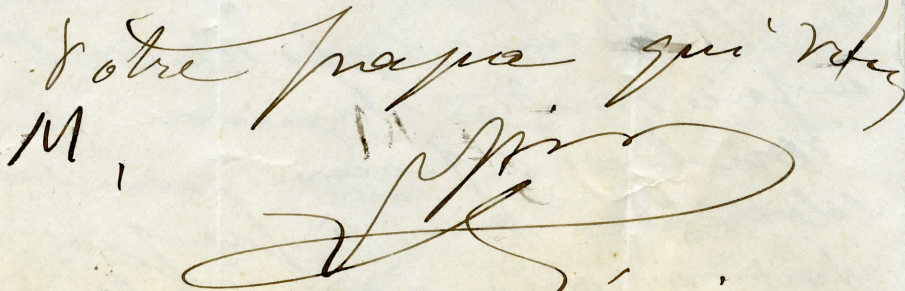 Votre papa qui vous
M,